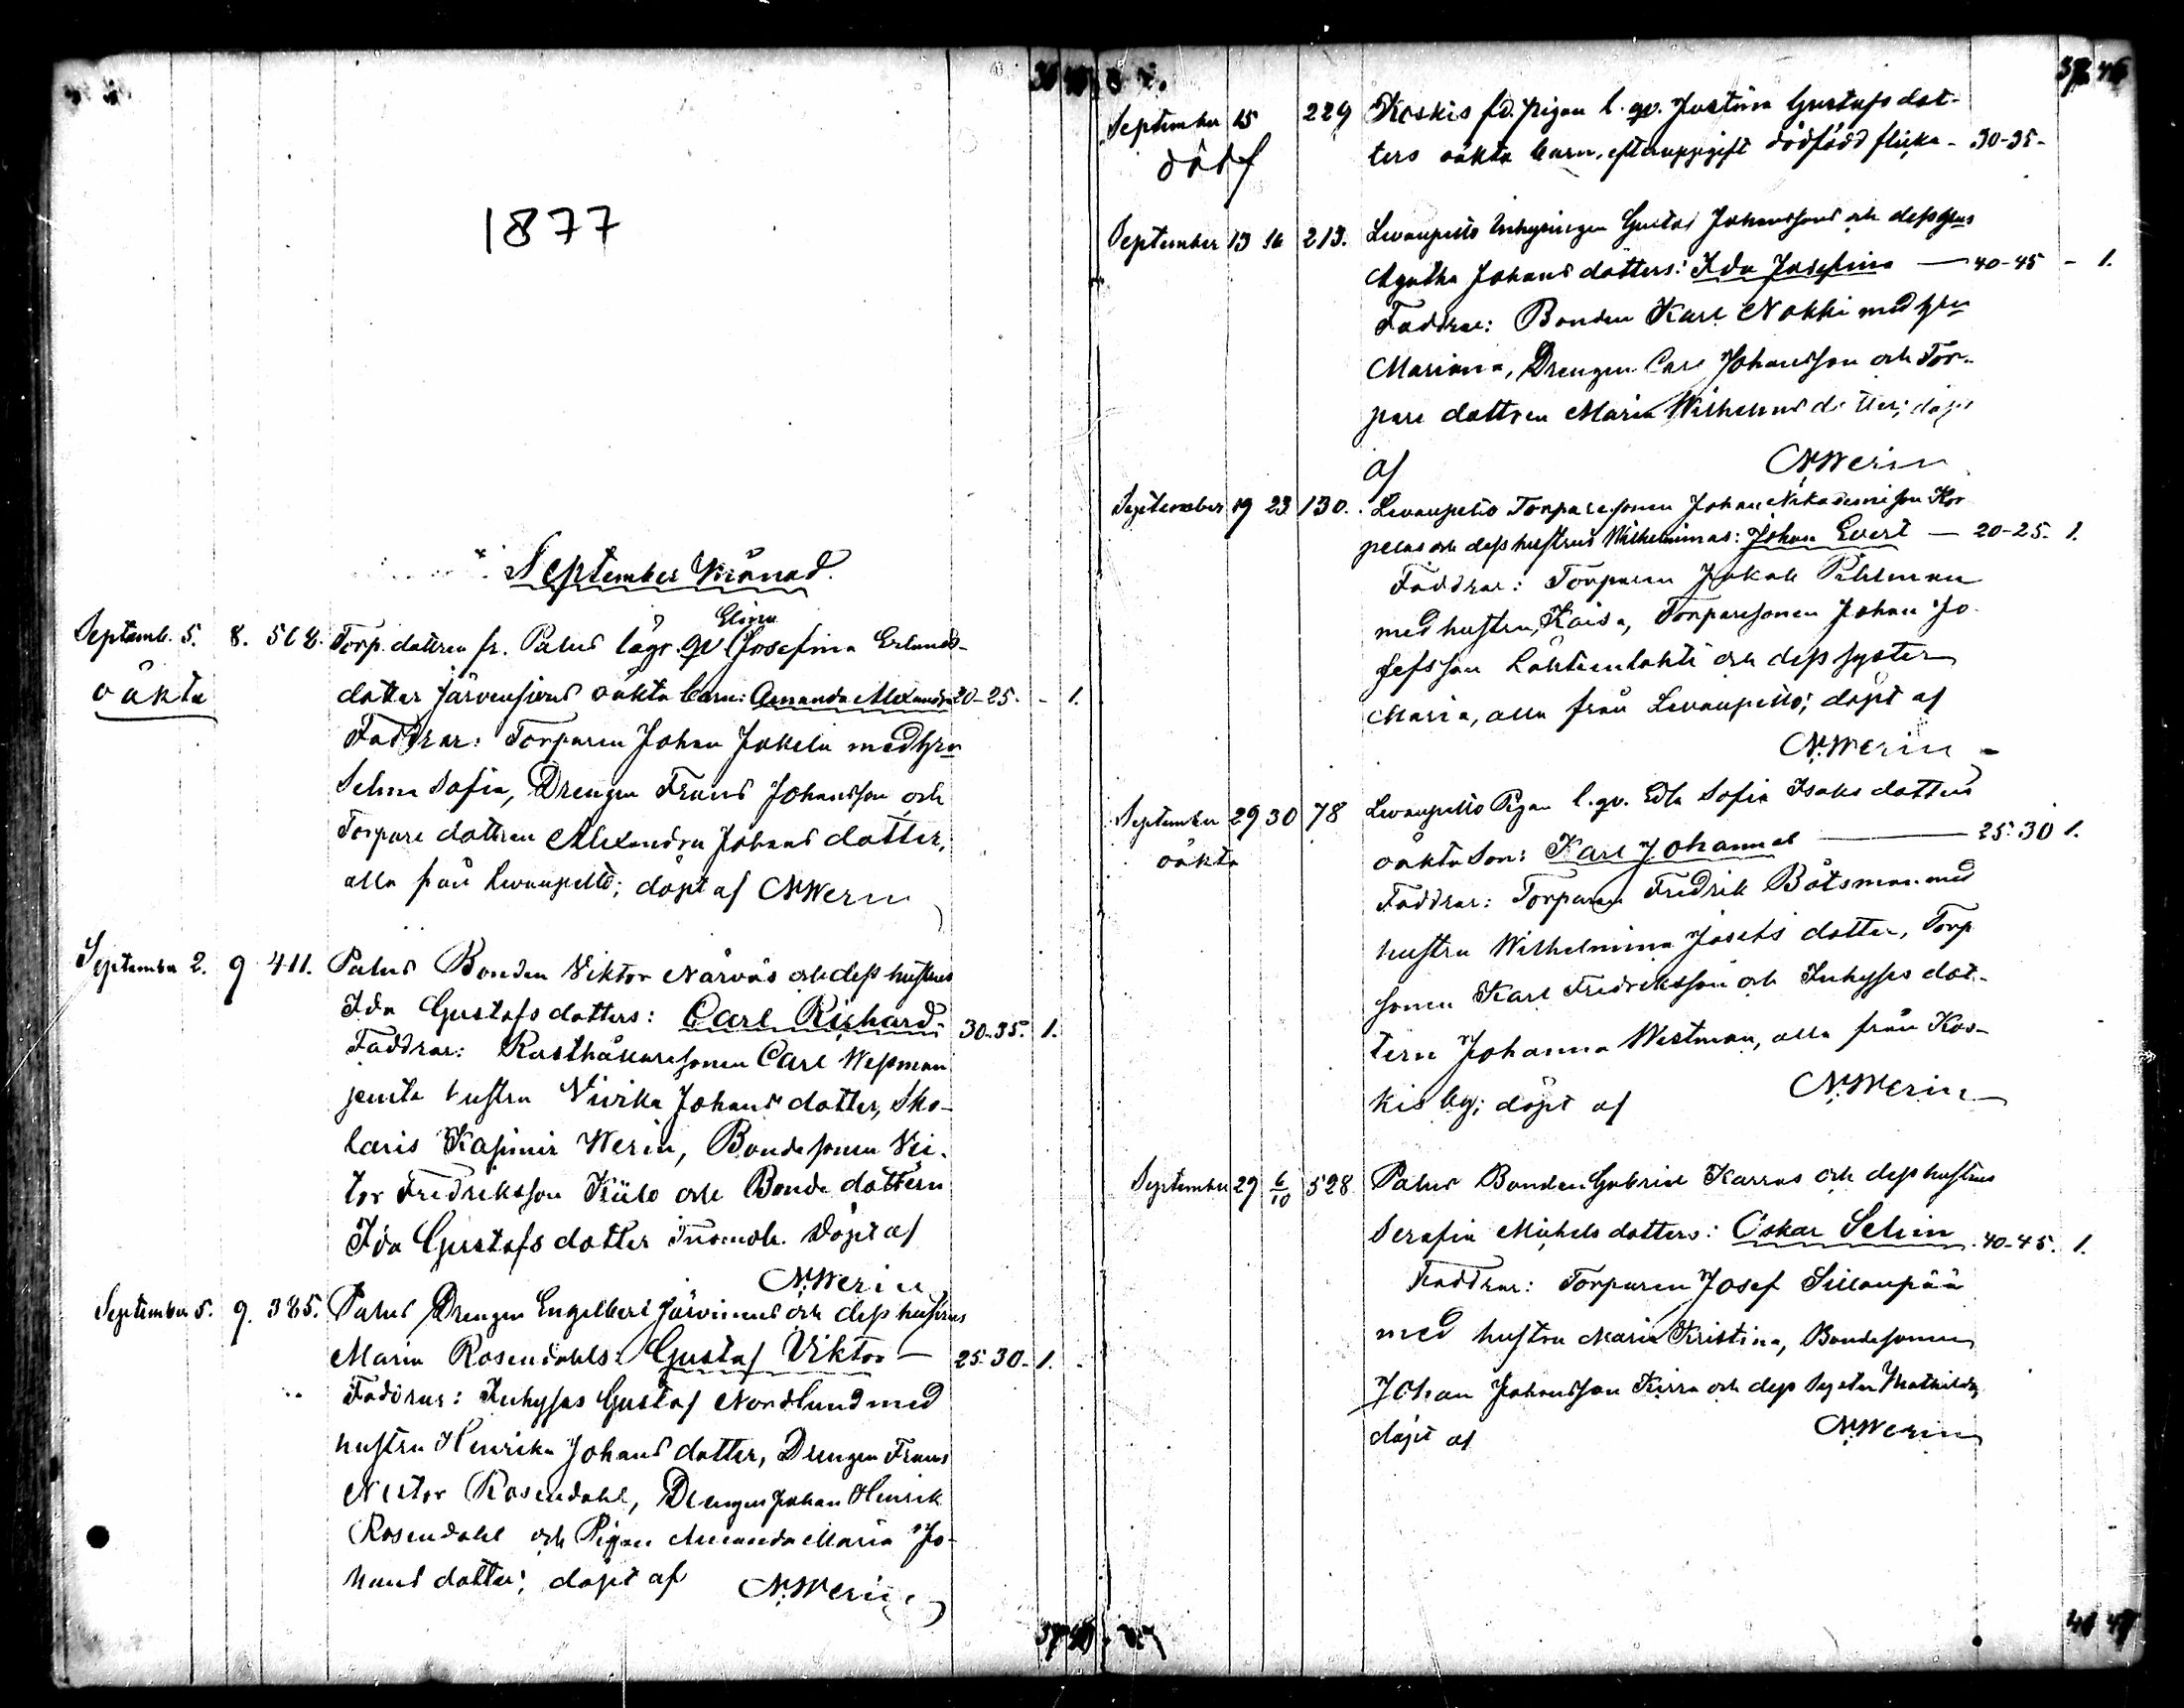 1877
September Månad.
Elina
Septemb. 5. 8. 568. Torp. dottren fr. Palus lägr. qv. Josefina Erlands-
oäkta
dotter Järvensivus oäkta barn: Amanda Alexandra 20-25. - 1.
Faddrar: Torparen Johan Jokela med hru
Selma Sofia, Drengen Frans Johansson och
Torpare dottren Alexandra Johans dotter,
alla från Levanpelto; döpt af N. Werin
September 2. 9 411. Palus Bonden Viktor Närväs och dess hustrus
Ida Gustafs dotters: Carl Richard. 30-35. 1.
Faddrar: Rusthållaresonen Carl Wessman
jemte hustru Vivika Johans dotter, Sko-
laris Kasimir Werin, Bondesonen Vik-
tor Fredriksson Kiilo och Bonde dottern
Ida Gustafs dotter Döpt af
N. Werin
September 5. 9. 385. Palus Drengen Engelbert Järvinens och dess hustrus
Maria Rosendahls: Gustaf Viktor — 25-30-1.
Faddrar: Inhyses Gustaf Nordlund med
hustru Henrika Johans dotter, Drengen Frans
Nestor Rosendahl, Drengen Johan Henrik
Rosendahl och Pigan Amanda Maria Jo-
hans dotter; döpt af N. Werin
September 15 229 Koskis fd. pigan l. qv. Justina Gustafs dot-
dödf
ters oäkta barn, efter uppgift dödfödd flicka - 30-35-
September 13 16 213. Levanpelto Inhysingen Gustaf Johanssons och dess hrus
Agatha Johans dotters: Ida Josefina — 40-45 - 1.
Faddrar: Bonden Karl Nokki med hru
Mariana, Drengen Carl Johansson och Tor-
pare dottren Maria Wilhelms dotter; döpt
af N. Werin
September 19 23 130. Levanpelto Torparesonen Johan Nikodemisson Kor
pelas och dess hustrus Wilhelminas: Johan Evert — 20-25. 1.
Faddrar: Torparen Jakob Pihlman
med hustru Kaisa, Torparesonen Johan Jo-
sefsson Lähteenlahti och dess syster
Maria, alla från Levanpelto; döpt af
N. Werin -
September 29 30 78 Levanpelto Pigan l. qv. Edla Sofia Isaks dotters
oäkta
oäkta Son: Karl Johannes — 25-30 1.
Faddrar: Torparen Fredrik Båtsman med
hustru Wilhelmina Josefs dotter, Torp
sonen Karl Fredriksson och Inhyses dot-
tern Johanna Westman, alla från Kos-
kis by; döpt af N. Werin
September 29 6/10 528 Palus Bonden Gabriel Karras och dess hustrus
Serafia Michels dotters: Oskar Selim 40-45. 1.
Faddrar: Torparen Josef Sillanpää
med hustru Maria Kristina, Bondesonen
Johan Johansson Kirra och dess Syster Mathilda,
döpt af N. Werin